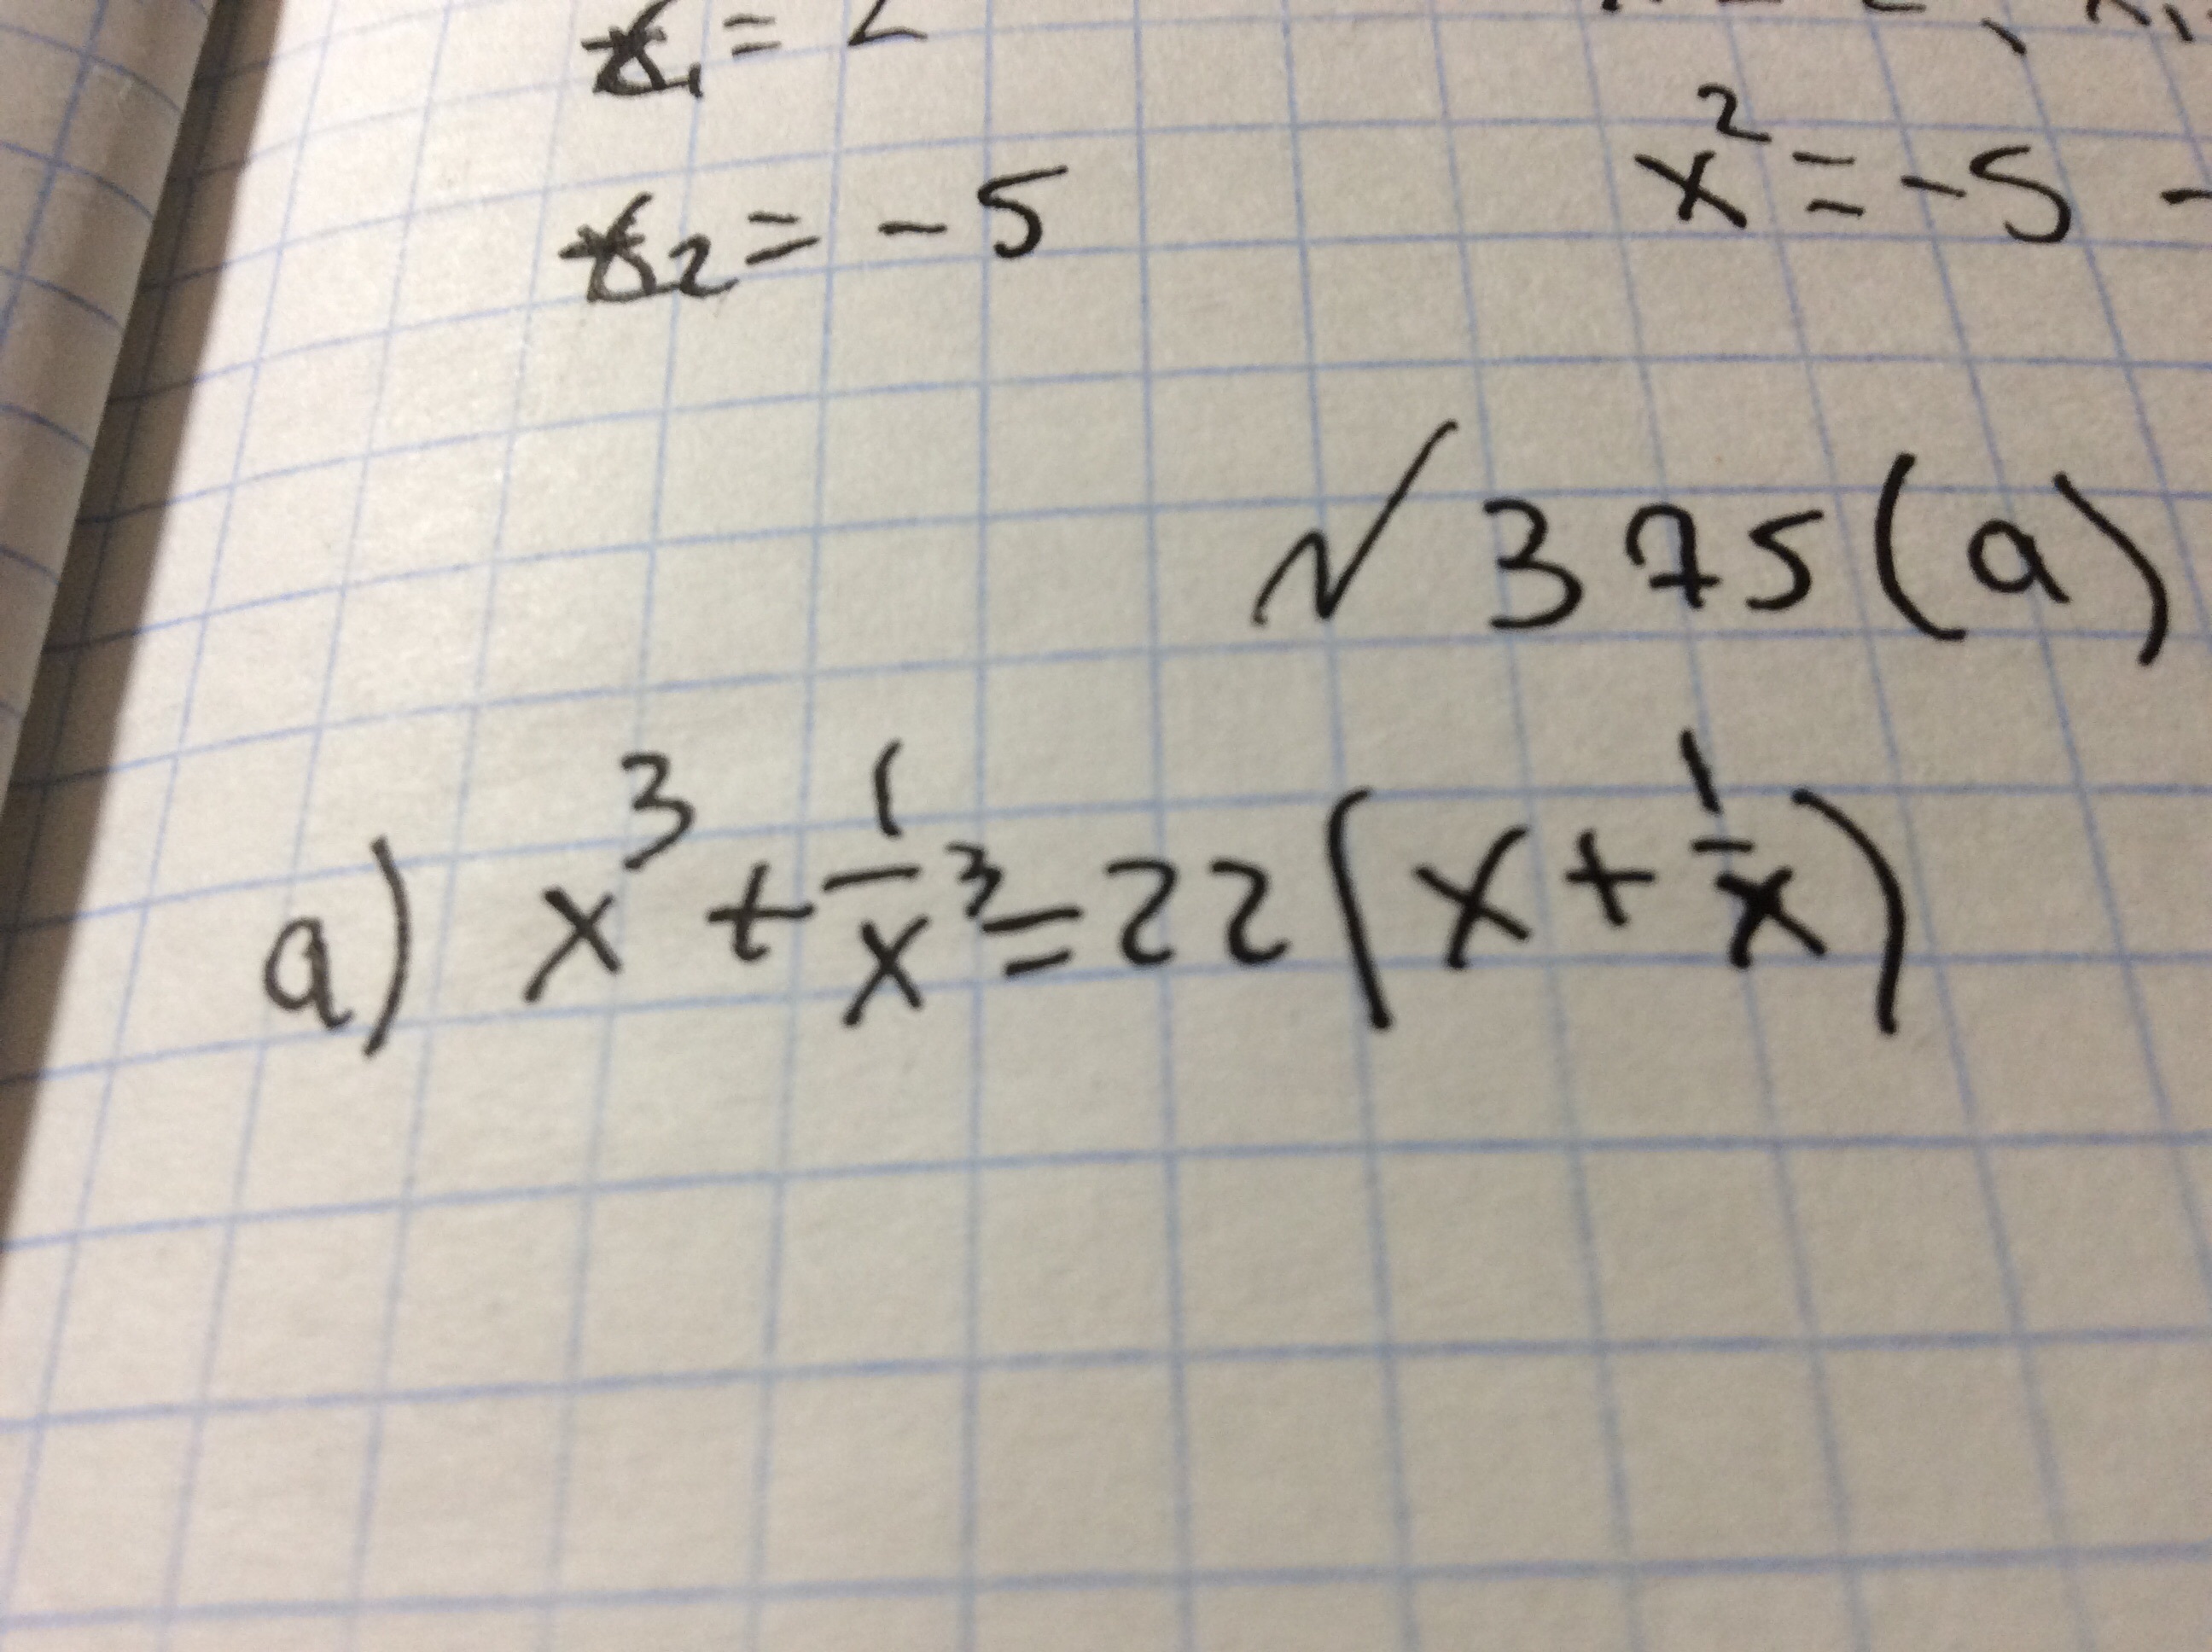 x₁ = 2
x₂ = -5
x² = -5 -
√ 375 (a)
a) x³ + 1/x³ = 22 (x + 1/x)